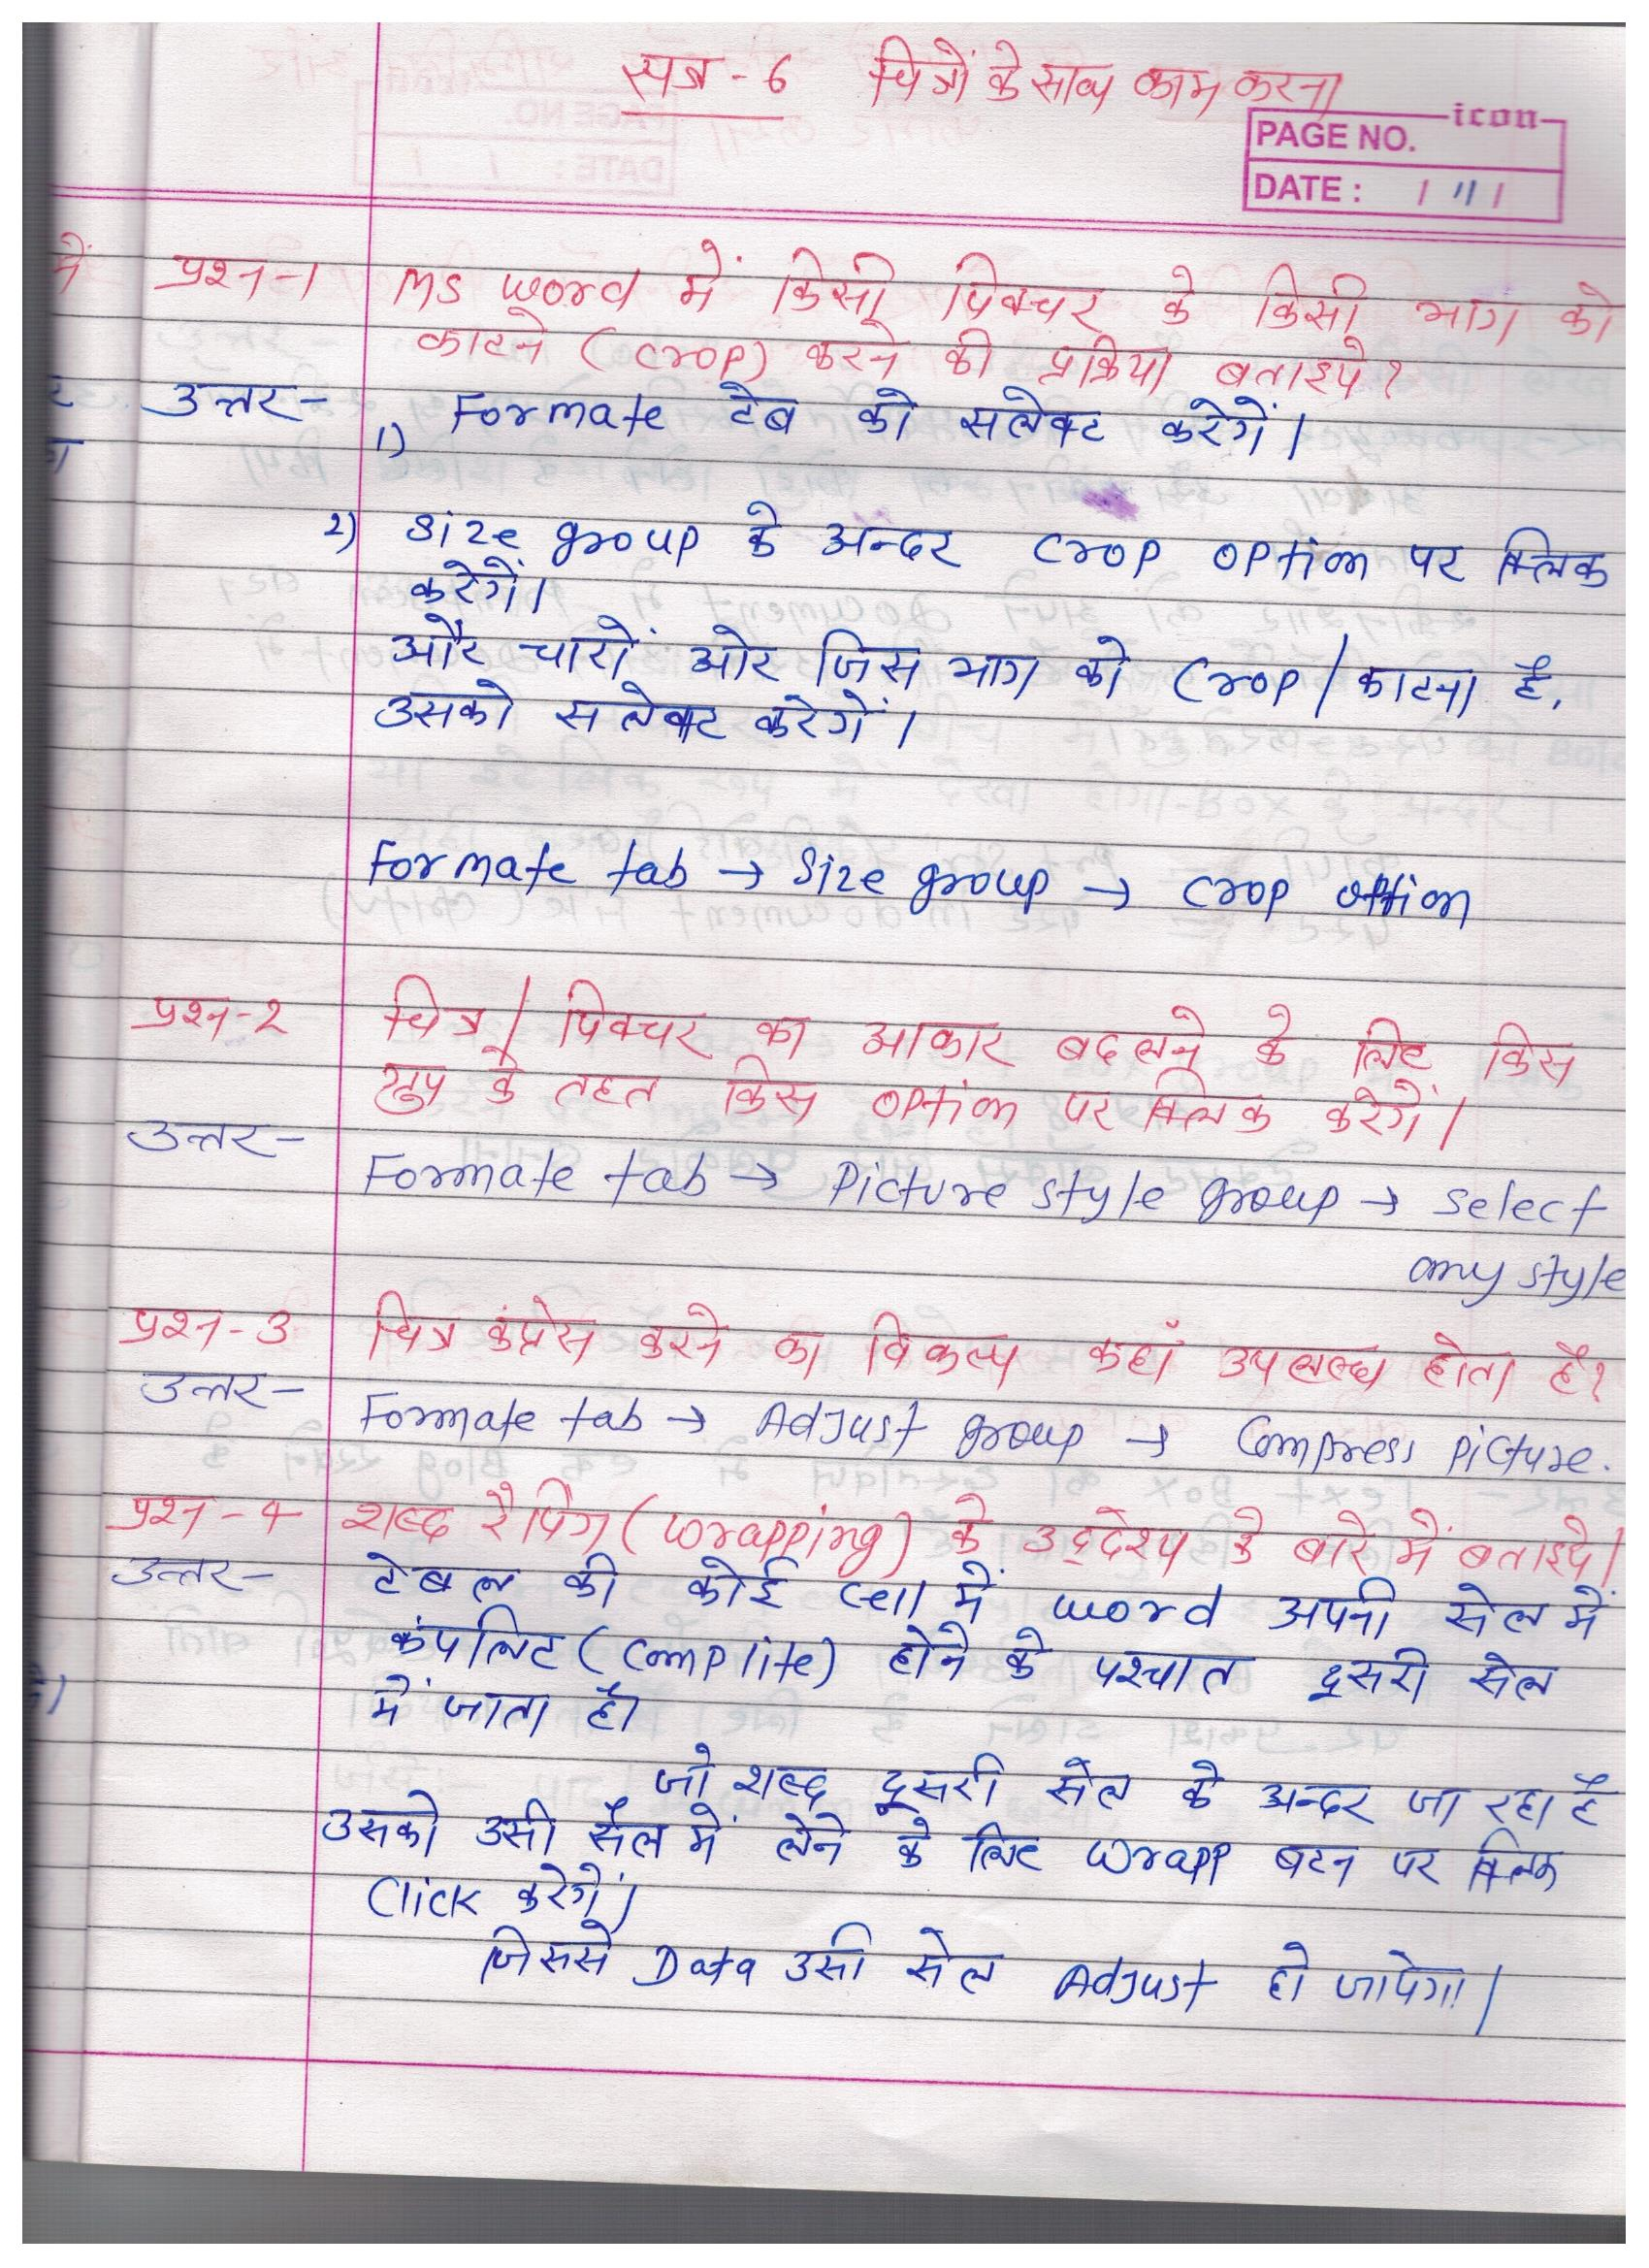 सत्र - 6 चित्रों के साथ काम करना
icon
PAGE NO.
DATE : / 11 /
प्रश्न-1 MS word में किसी पिक्चर के किसी भाग को
काटने (crop) करने की प्रक्रिया बताइये?
उत्तर-
1) Formate टेब को सलेक्ट करेगें।
2) Size group के अन्दर crop option पर क्लिक
करेगें।
और चारों ओर जिस भाग को Crop/काटना है,
उसको सलेक्ट करेगें।
Formate tab → Size group → crop option
प्रश्न-2 चित्र/पिक्चर का आकार बदलने के लिए किस
ग्रुप के तहत किस option पर क्लिक करेगें।
उत्तर- Formate tab → Picture style group → select
any style
प्रश्न-3 चित्र कंप्रेस करने का विकल्प कहाँ उपलब्ध होता है?
उत्तर- Formate tab → Adjust group → Compress picture.
प्रश्न-4 शब्द रैपिंग (wrapping) के उद्देश्य के बारे में बताइये।
उत्तर- टेबल की कोई cell में word अपनी सेल में
कंपलिट (complite) होने के पश्चात दूसरी सेल
में जाता है।
जो शब्द दूसरी सेल के अन्दर जा रहा है
उसको उसी सैल में लेने के लिए wrapp बटन पर क्लिक
Click करेगें।
जिससे Data उसी सेल Adjust हो जायेगा।